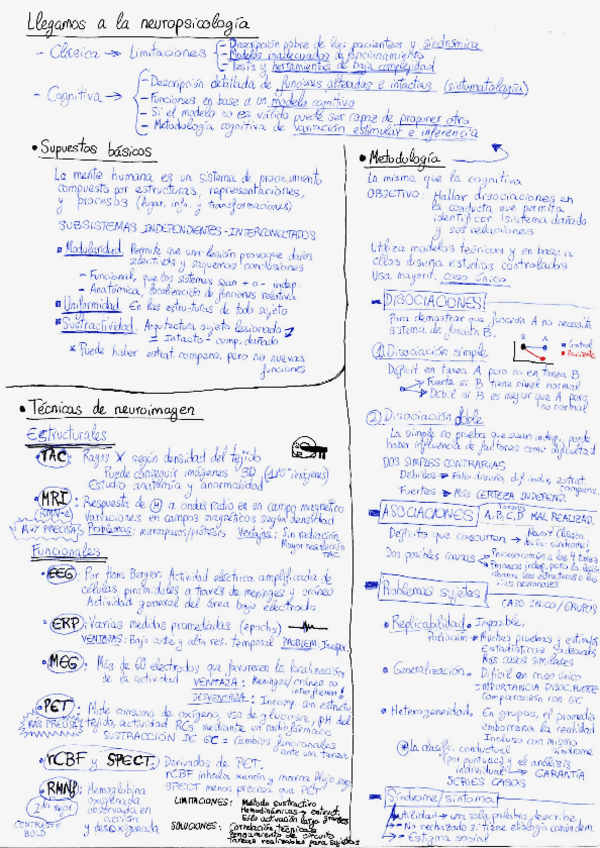 Llegamos a la neuropsicología
- Clásica → Limitaciones
- Descripción pobre de los pacientes y sindrómica
- Modelos inadecuados de funcionamiento
- Tests y herramientas de baja complejidad
- Cognitiva →
- Descripción detallada de funciones alteradas e intactas (sintomatología)
- Funciones en base a un modelo cognitivo
- Si el modelo no es válido puede ser capaz de proponer otro
- Metodología cognitiva de variación estimular e inferencia
• Supuestos básicos
La mente humana es un sistema de procesamiento
compuesto por estructuras, representaciones,
y procesos (Agar. info. y transformaciones)
SUBSISTEMAS INDEPENDIENTES-INTERCONECTADOS
Modularidad. Permite que una lesión provoque daños
selectivos y saquemos conclusiones
- Funcional, que los sistemas sean + o - indep.
- Anatómica, localización de funciones relativa
Uniformidad. En las estructuras de todo sujeto
Sustractividad. Arquitectura sujeto lesionado
= Intacto - comp. dañado
* Puede haber estrat. compens. pero no nuevas
funciones
• Metodología
La misma que la cognitiva
OBJETIVO: Hallar disociaciones en
la conducta que permita
identificar sistema dañado
y sus relaciones
Utiliza modelos teóricos y en base a
ellos diseña estudios controlados
Usa mayorit. caso único
DISOCIACIONES
Para demostrar que función A no necesita
sistema de función B.
① Disociación simple
B A
Control
Paciente
Déficit en tarea A pero no en tarea B
Fuerte si B tiene nivel normal
Débil si B es mejor que A pero
no normal
② Disociación doble
La simple no prueba que sean indep., puede
haber influencia de factores como dificultad
DOS SIMPLES CONTRARIAS
Débiles → Fallo diseño, dif. indiv., estrat.
compens.
Fuertes → Más CERTEZA INDEPEND.
ASOCIACIONES
Tareas
A,B,C,D MAL REALIZAD.
Déficits que concurren
Dos posibles causas
Proceso común a las 4 tareas
Problemas sujetos
CASO ÚNICO/GRUPOS
• Replicabilidad • Imposible.
Muchas pruebas y estímulos
Estadísticas adecuadas
Más casos similares
• Generalización. • Difícil en caso único
= IMPORTANCIA DISOC. FUERTE
Comparación con GC
• Heterogeneidad. En grupos, el promedio
emborrona la realidad
Incluso con mismo
síndrome
* La clasific. conductual
(por puntuac) y el análisis
individual → GARANTÍA
SERIES CASOS
Síndrome/síntoma
Utilidad → una sola palabra describe
- No rechazado si tiene etiología conden.
- Estigma social
• Técnicas de neuroimagen
Estructurales
• TAC: Rayos X según densidad del tejido
Puede conseguir imágenes 3D
Estudio anatomía y anormalidad
• MRI: Respuesta de H a ondas radio en un campo magnético
Variaciones en campos magnéticos según densidad
MUY PRECISA
Problemas: marcapasos/prótesis Ventajas: Sin radiación
Mayor resolución
TAC
Funcionales
• EEG: Por Hans Berger. Actividad eléctrica amplificada de
células piramidales a través de meninges y cráneo
Actividad general del área bajo electrodo
• ERP: Varias medidas promediadas (epochs)
VENTAJAS: Bajo coste y alta res. temporal PROBLEM:
• MEG: Más de 60 electrodos que favorecen la localización
de la actividad VENTAJA: Meninges/cráneo no
interfieren
DESVENTAJA: Incomp. sim estructu
• PET: Mide consumo de oxígeno, uso de glucosa, pH del
tejido, actividad RCS mediante un radiofármaco
MÁS PRECISA
SUSTRACCIÓN DE GC = Cambios funcionales
ante una tarea
• rCBF y SPECT. Derivados de PET.
rCBF inhala xenón y marca flujo sang
SPECT menos precisa que PET
• RMNf: Hemoglobina
oxigenada
observada en
acción
y desoxigenada
CONTRASTE
BOLD
LIMITACIONES: Método sustractivo
Hemodinámicas →
Sólo activación larga grandes
SOLUCIONES: Correlación técnicas
Pensamiento de circuito
Tareas realizables para sujetos